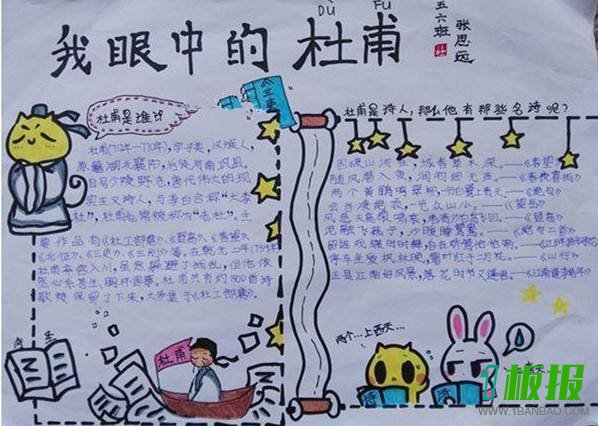 DÙ FU
我眼中的杜甫
五六班
张思远
杜甫是谁?
杜甫(712年—770年),字子美,汉族人,
原籍湖北襄阳,后徙河南巩县。
自号少陵野老,唐代伟大的现
实主义诗人,与李白合称"大李
杜",杜甫也常被称为"老杜",主
要作品有《杜工部集》、《登高》、《春望》
《北征》、《三吏》、《三别》等。在乾元二年(759年
杜甫弃官入川,虽然躲避了战乱,但他依
然心系苍生,胸怀国事。杜甫共有约1500首诗
歌被保留了下来,大多集于《杜工部集》
杜甫
杜甫是诗人,那么他有那些名诗呢?
国破山河在,城春草木深。——《春望》
随风潜入夜,润物细无声。——《春夜喜雨》
两个黄鹂鸣翠柳,一行白鹭上青天——《绝句》
会当凌绝顶,一览众山小。——《望岳》
风急天高猿啸哀,渚清沙白鸟飞回。——《登高》
泥融飞燕子,沙暖睡鸳鸯。——《绝句二首》
留连戏蝶时时舞,自在娇莺恰恰啼。
停车坐爱枫林晚,霜叶红于二月花。——《山行》
正是江南好风景,落花时节又逢君。——《江南逢李龟年》
两个...上西天...
诗
诗
板报
WWW.1BANBAO.COM